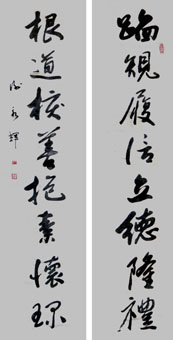 蹈規履信立德隆禮
根道核善抱素懷璞